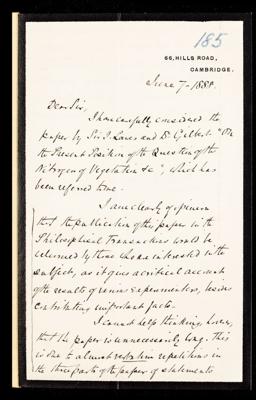 185
66, HILLS ROAD,
CAMBRIDGE.
June 7 - 1888.
Dear Sir,
I have carefully considered the
paper by Sir J. Lawes and Dr Gilbert "On
the Present Position of the Question of the
Nitrogen of Vegetation &c", which has
been referred to me.
I am clearly of opinion
that the publication of this paper in the
Philosophical Transactions would be
welcomed by those who are interested in the
subject, as it gives a critical account
of the results of various experimenters, besides
contributing important facts.
I cannot help thinking, however,
that the paper is unnecessarily long. This
is due to almost verbatim repetitions in
the three parts of the paper of statements